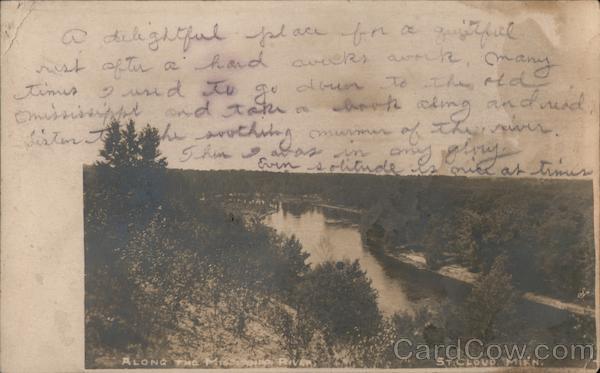 A delightful place for a quietful
rest after a hard weeks work. Many
times I used to go down to the old
Mississippi and take a book along and read.
Listen to the soothing murmur of the river.
Then I was in my glory.
Even solitude is nice at times
ALONG THE MISSISSIPPI RIVER, ST. CLOUD, MINN.
CardCow.com